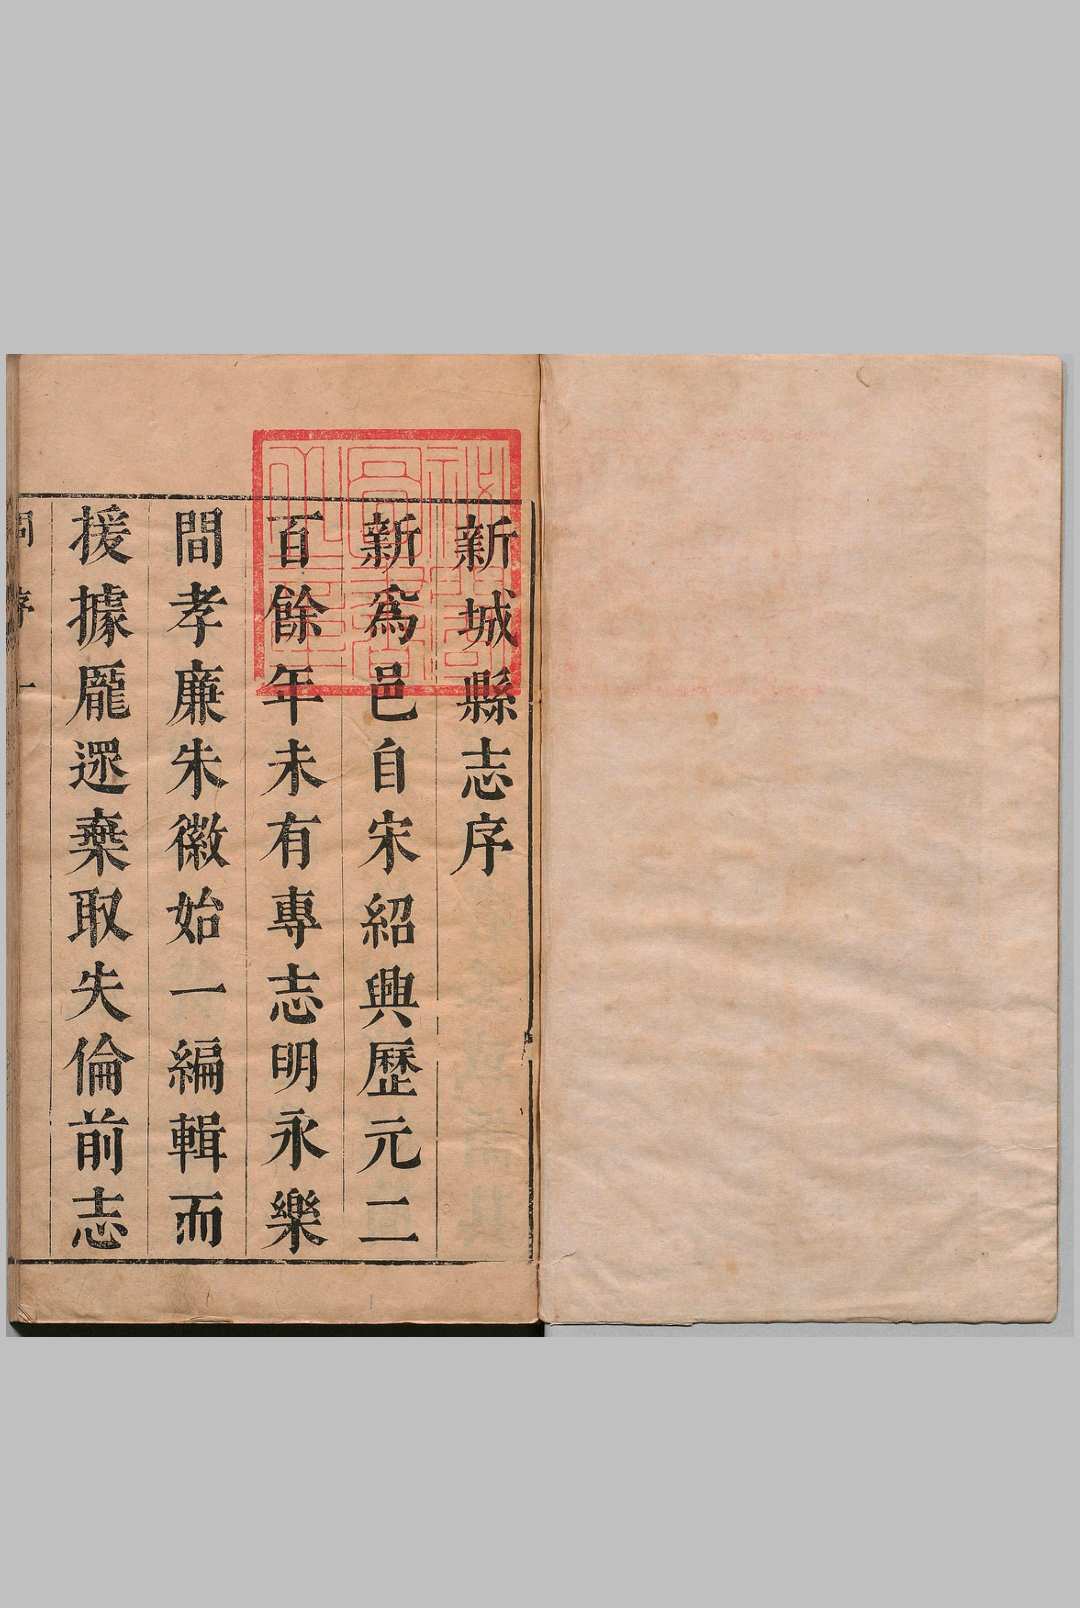 新城縣志序
新爲邑自宋紹興歷元二
百餘年未有專志明永樂
間孝廉朱徽始一編輯而
援據龎遝棄取失倫前志
周序 一